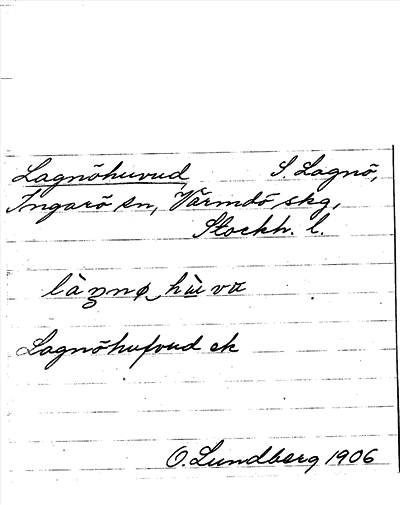 Lagnöhuvud S. Lagnö,
Ingarö sn, Värmdö skg,
Stockh. l.
làŋnø hù̱va
Lagnöhufvud ek
O. Lundberg 1906